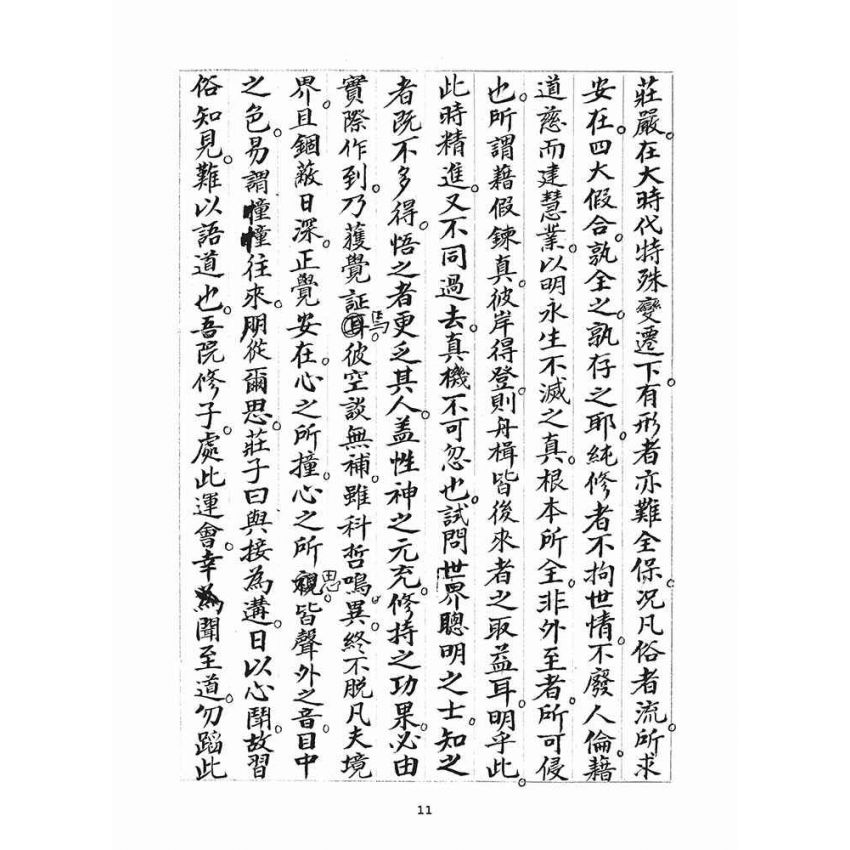 莊嚴。在大時代特殊變遷下。有形者亦難全保。況凡俗者流。所求
安在。四大假合。孰全之。孰存之耶。純修者不拘世情。不廢人倫。藉
道慈而建慧業。以明永生不滅之真。根本所全。非外至者。所可侵
也。所謂藉假鍊真。彼岸得登。則舟楫皆後來者之取益耳。明乎此。
此時精進。又不同過去。真機不可忽也。試問世界聰明之士。知之
者既不多得。悟之者更乏其人。蓋性神之元充。修持之功果。必由
實際作到。乃獲覺証焉。彼空談無補。雖科哲鳴異。終不脫凡夫境
界。且錮蔽日深。正覺安在。心之所撞。心之所思。皆聲外之音。目中
之色。易謂憧憧往來。朋從爾思。莊子曰與接為溝。日以心鬪。故習
俗知見。難以語道也。吾院修子。處此運會。幸聞至道。勿蹈此
11